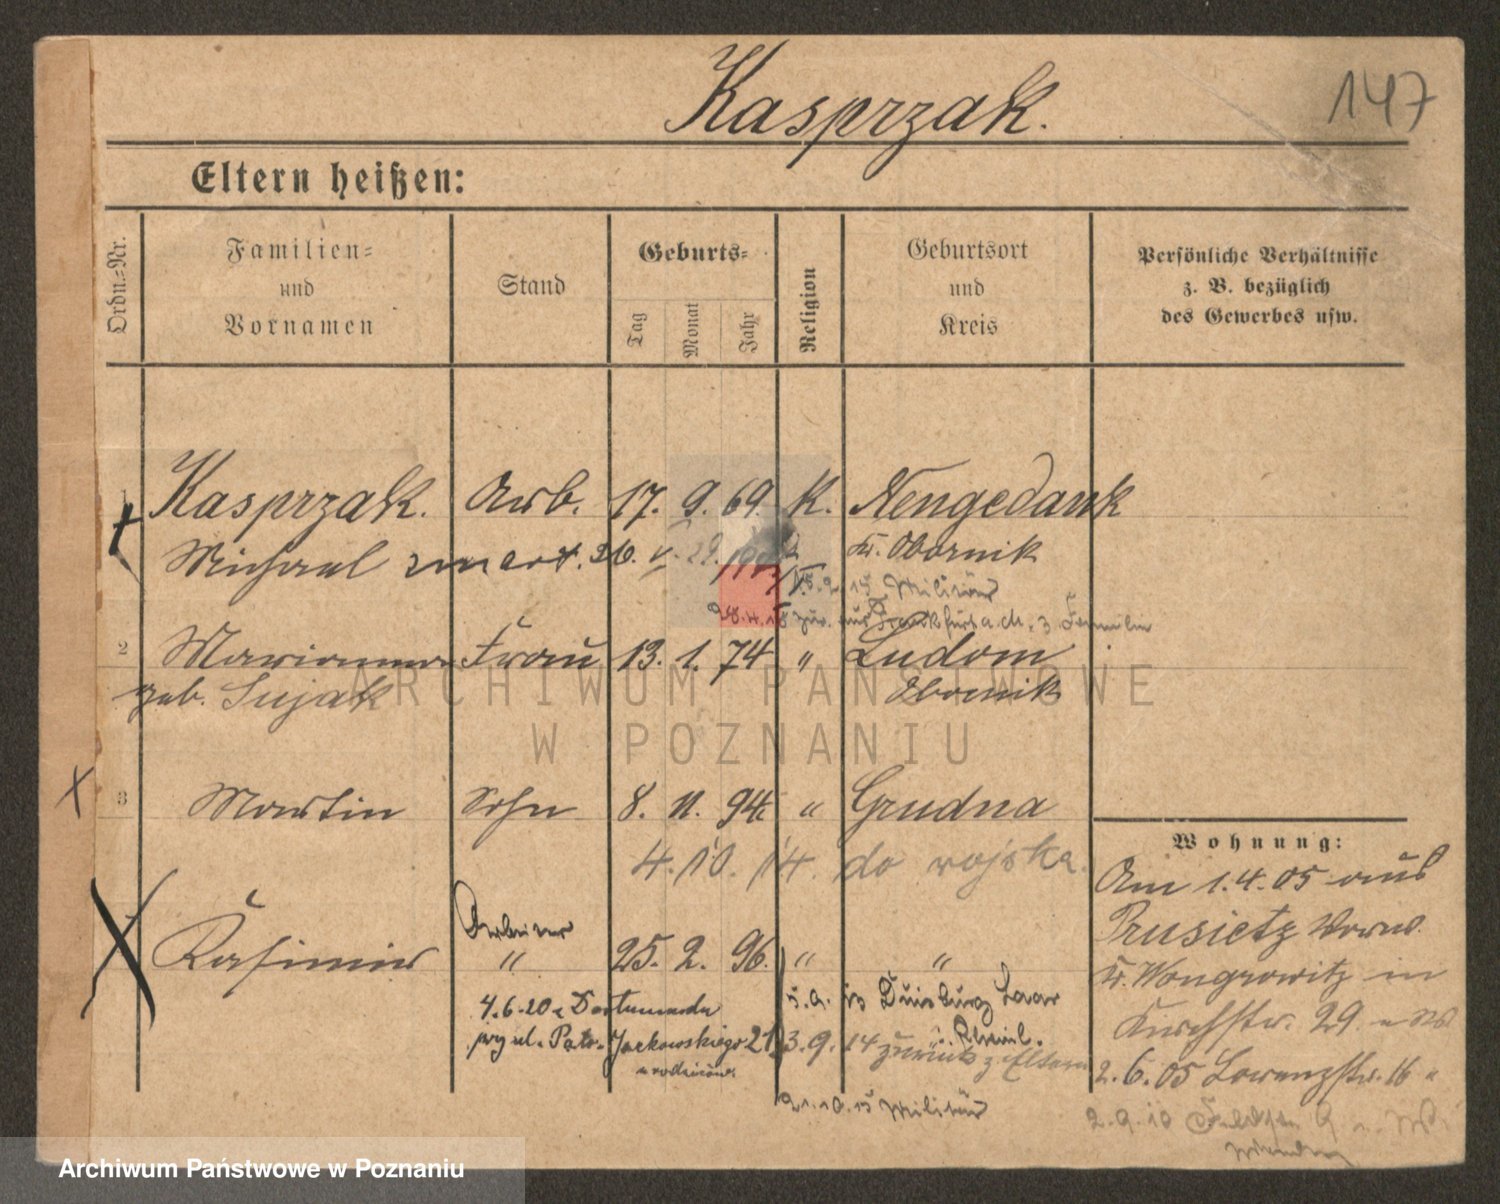 Kasprzak.
147
Eltern heißen:
Ordn.-Nr.
Familien-
und
Vornamen
Stand
Geburts-
Tag
Monat
Jahr
Religion
Geburtsort
und
Kreis
Persönliche Verhältnisse
z. B. bezüglich
des Gewerbes usw.
1 Kasprzak. Arb. 17. 9. 69. K. Nengedank
Michael zmarł. 26. V. 29. Kr. Obornik
15. Militär
28.4.18 zur. aus Frankfurt a. M. z. Familie
2 Marianna Frau 13. 1. 74 " Ludom
geb. Sujak Obornik
3 Martin Sohn 8. 11. 94. " Grudna
4. 10. 14. do wojska.
Kasimir Arbeiter
" 25. 2. 96. " "
4.6.20 z Dortmundu
przy ul. Patr. Jackowskiego 21
u rodziców.
is Duisburg Laar
i. Rheinl.
3. 9. 14 zurück z. Eltern
21.10.15 Militär
Wohnung:
Am 1.4.05 aus
Prusietz Vorw.
Kr. Wongrowitz in
Kirchstr. 29
2.6.05 Lorenzstr. 16
2.9.10
ARCHIWUM PAŃSTWOWE
W POZNANIU
Archiwum Państwowe w Poznaniu